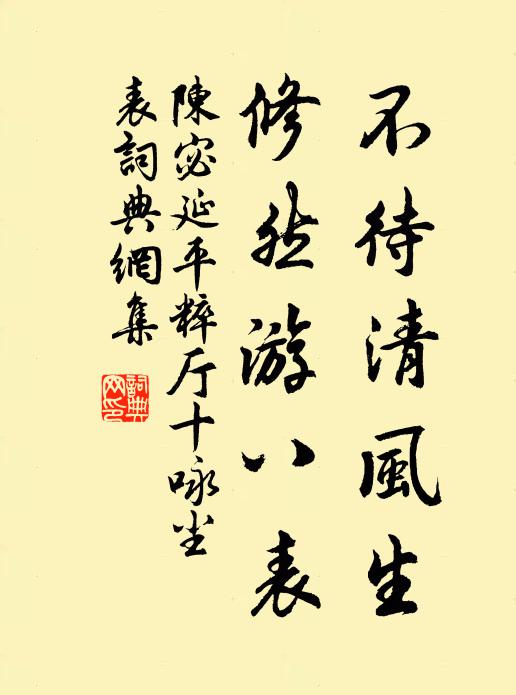 不待清風生
修然游八表
陳宓延平粹厅十咏尘
表詞典網集
詞典网印